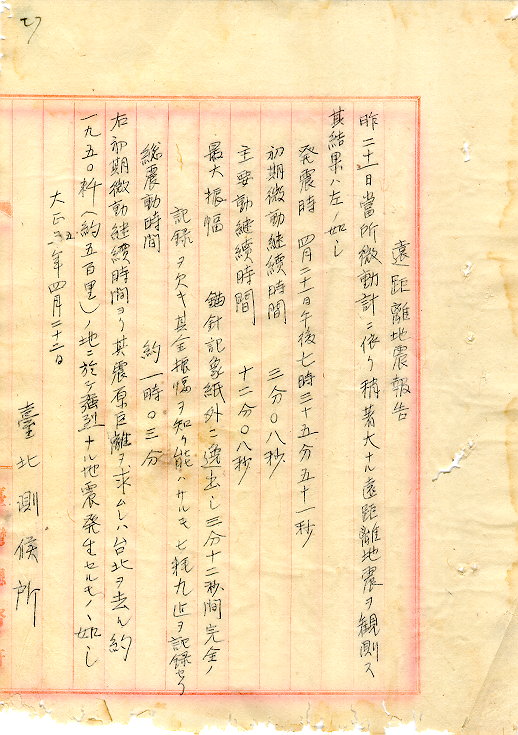 遠距離地震報告
昨二十一日當所微動計ニ依リ稍著大ナル遠距離地震ヲ観測ス
其結果ハ左ノ如シ
発震時 四月二十一日午後七時三十五分五十一秒
初期微動継續時間 三分〇八秒
主要動継續時間 十二分〇八秒
最大振幅 錨針記象紙外ニ逸出シ三分十二秒間完全ノ
記録ヲ欠キ其全振幅ヲ知リ能ハサルモ七粍九迄ヲ記録セリ
総震動時間 約一時〇三分
右初期微動継續時間ヨリ其震原距離ヲ求ムレハ台北ヲ去ル約
一九五〇粁(約五百里)ノ地ニ於テ強烈ナル地震発生セルモノヽ如シ
大正 年四月二十二日
臺北測候所